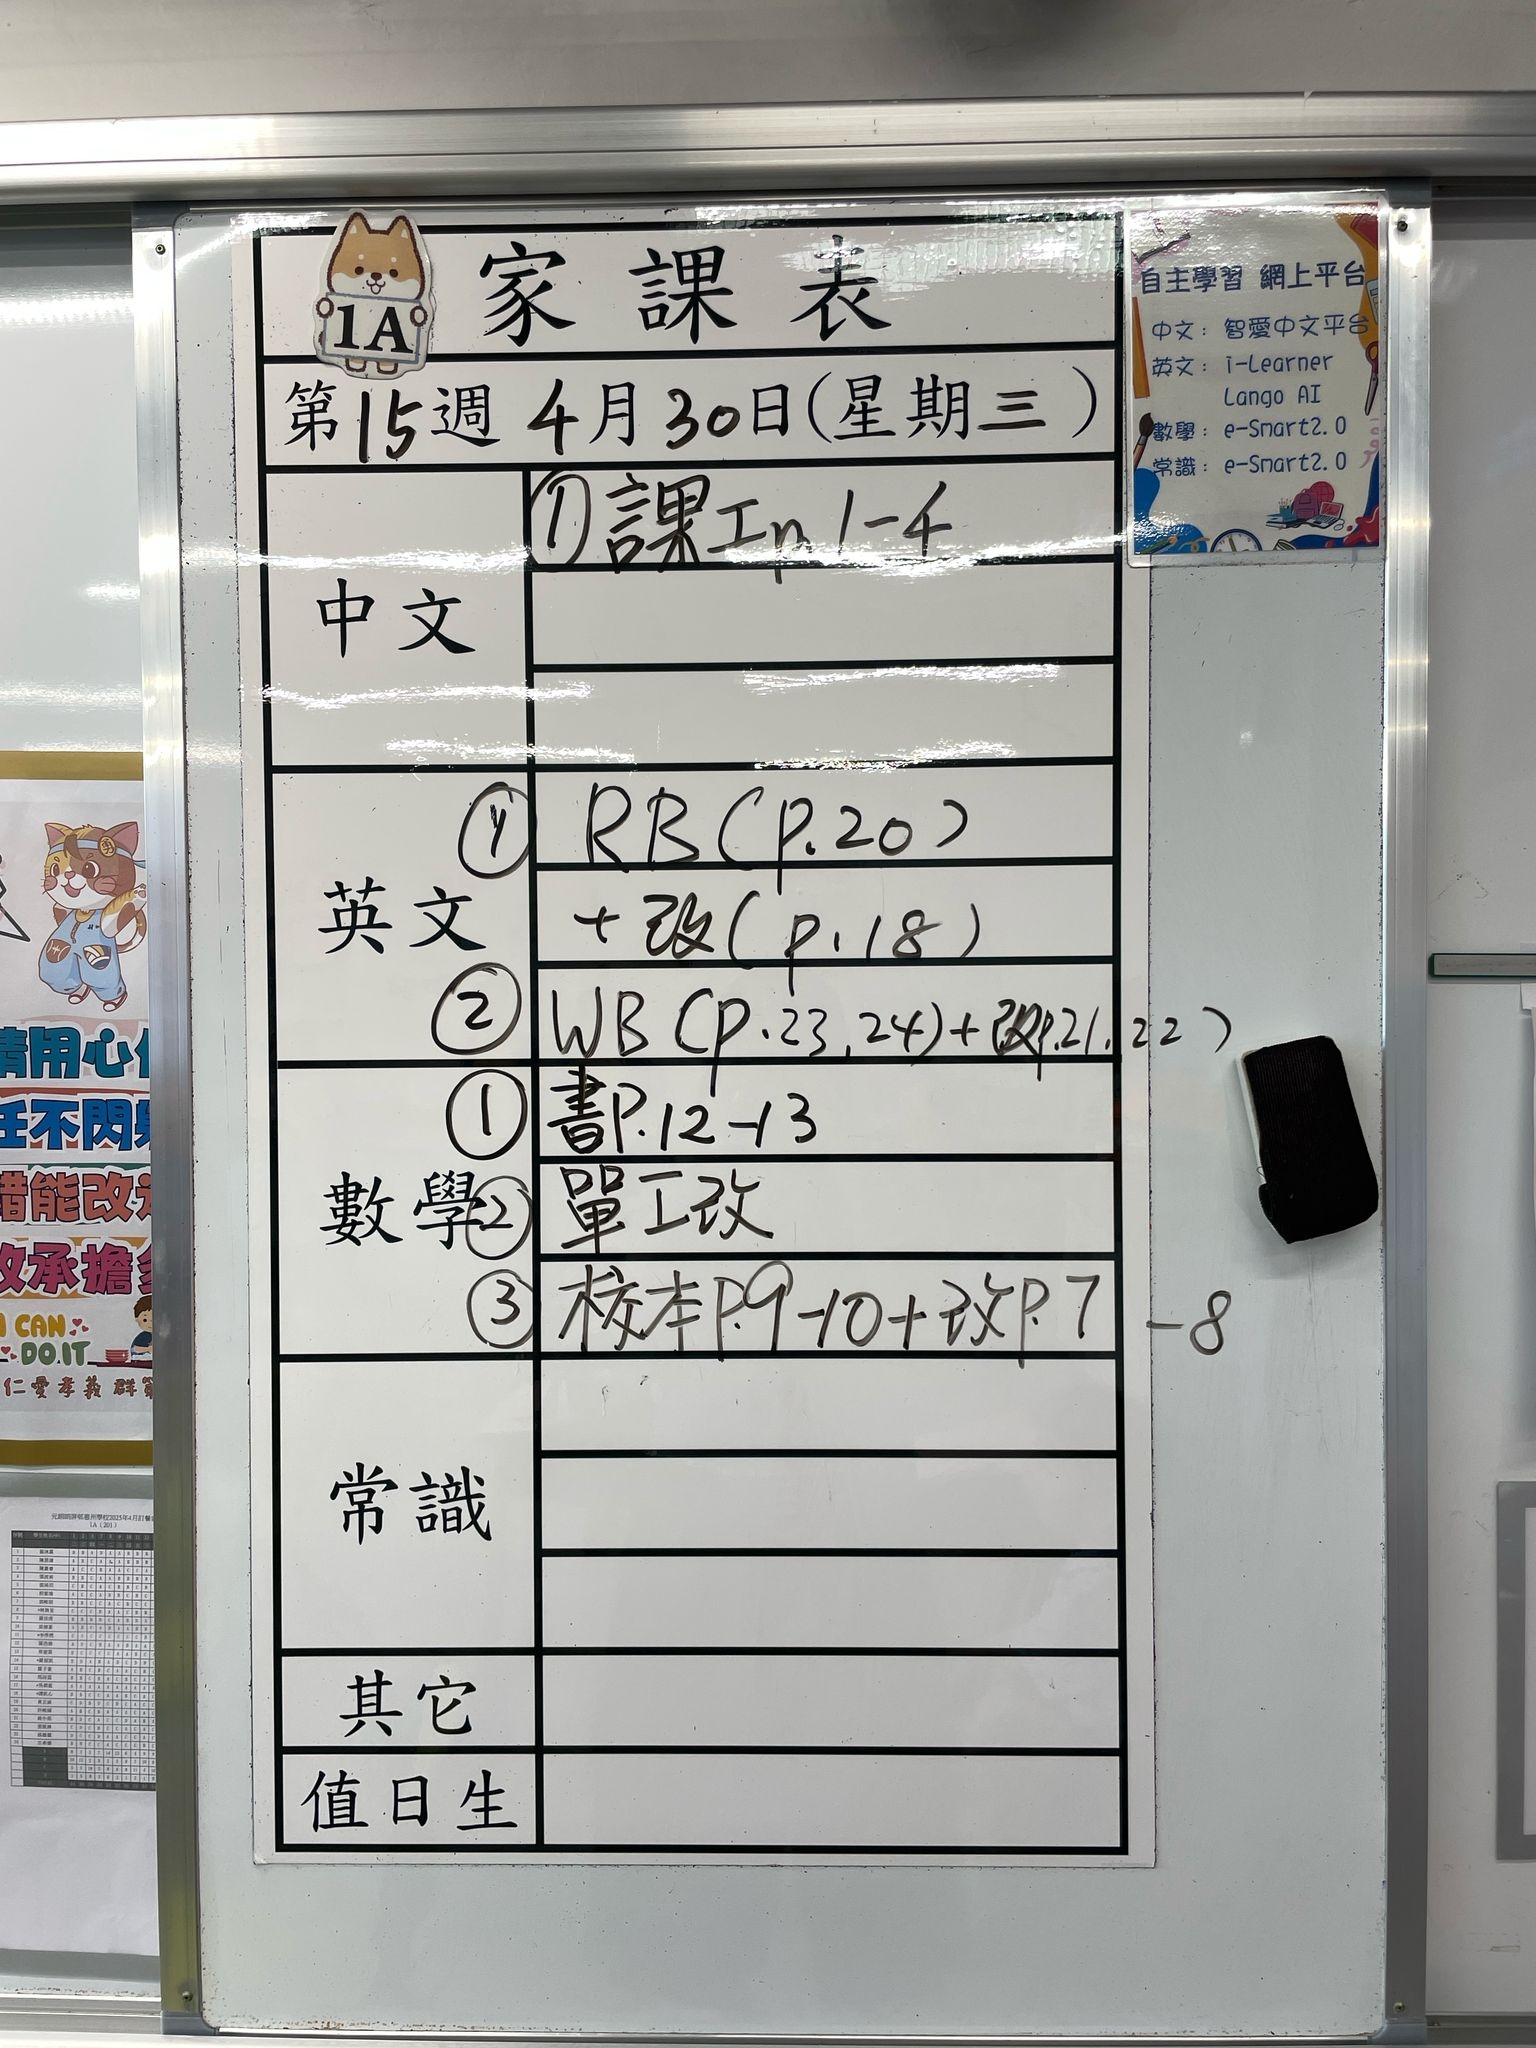 1A
家課表
第15週 4月30日(星期三)
中文
① 課工p.1-4
英文
① RB(p.20)
+改(p.18)
② WB(p.23,24)+改p.21,22)
數學
① 書P.12-13
② 單工改
③ 校本P.9-10+改P.7-8
常識
其它
值日生
自主學習 網上平台
中文：智愛中文平台
英文：i-Learner
Lango AI
數學：e-Smart2.0
常識：e-Smart2.0
請用心
任不閃
錯能改
改承擔
CAN
DO.IT
仁愛孝義 群